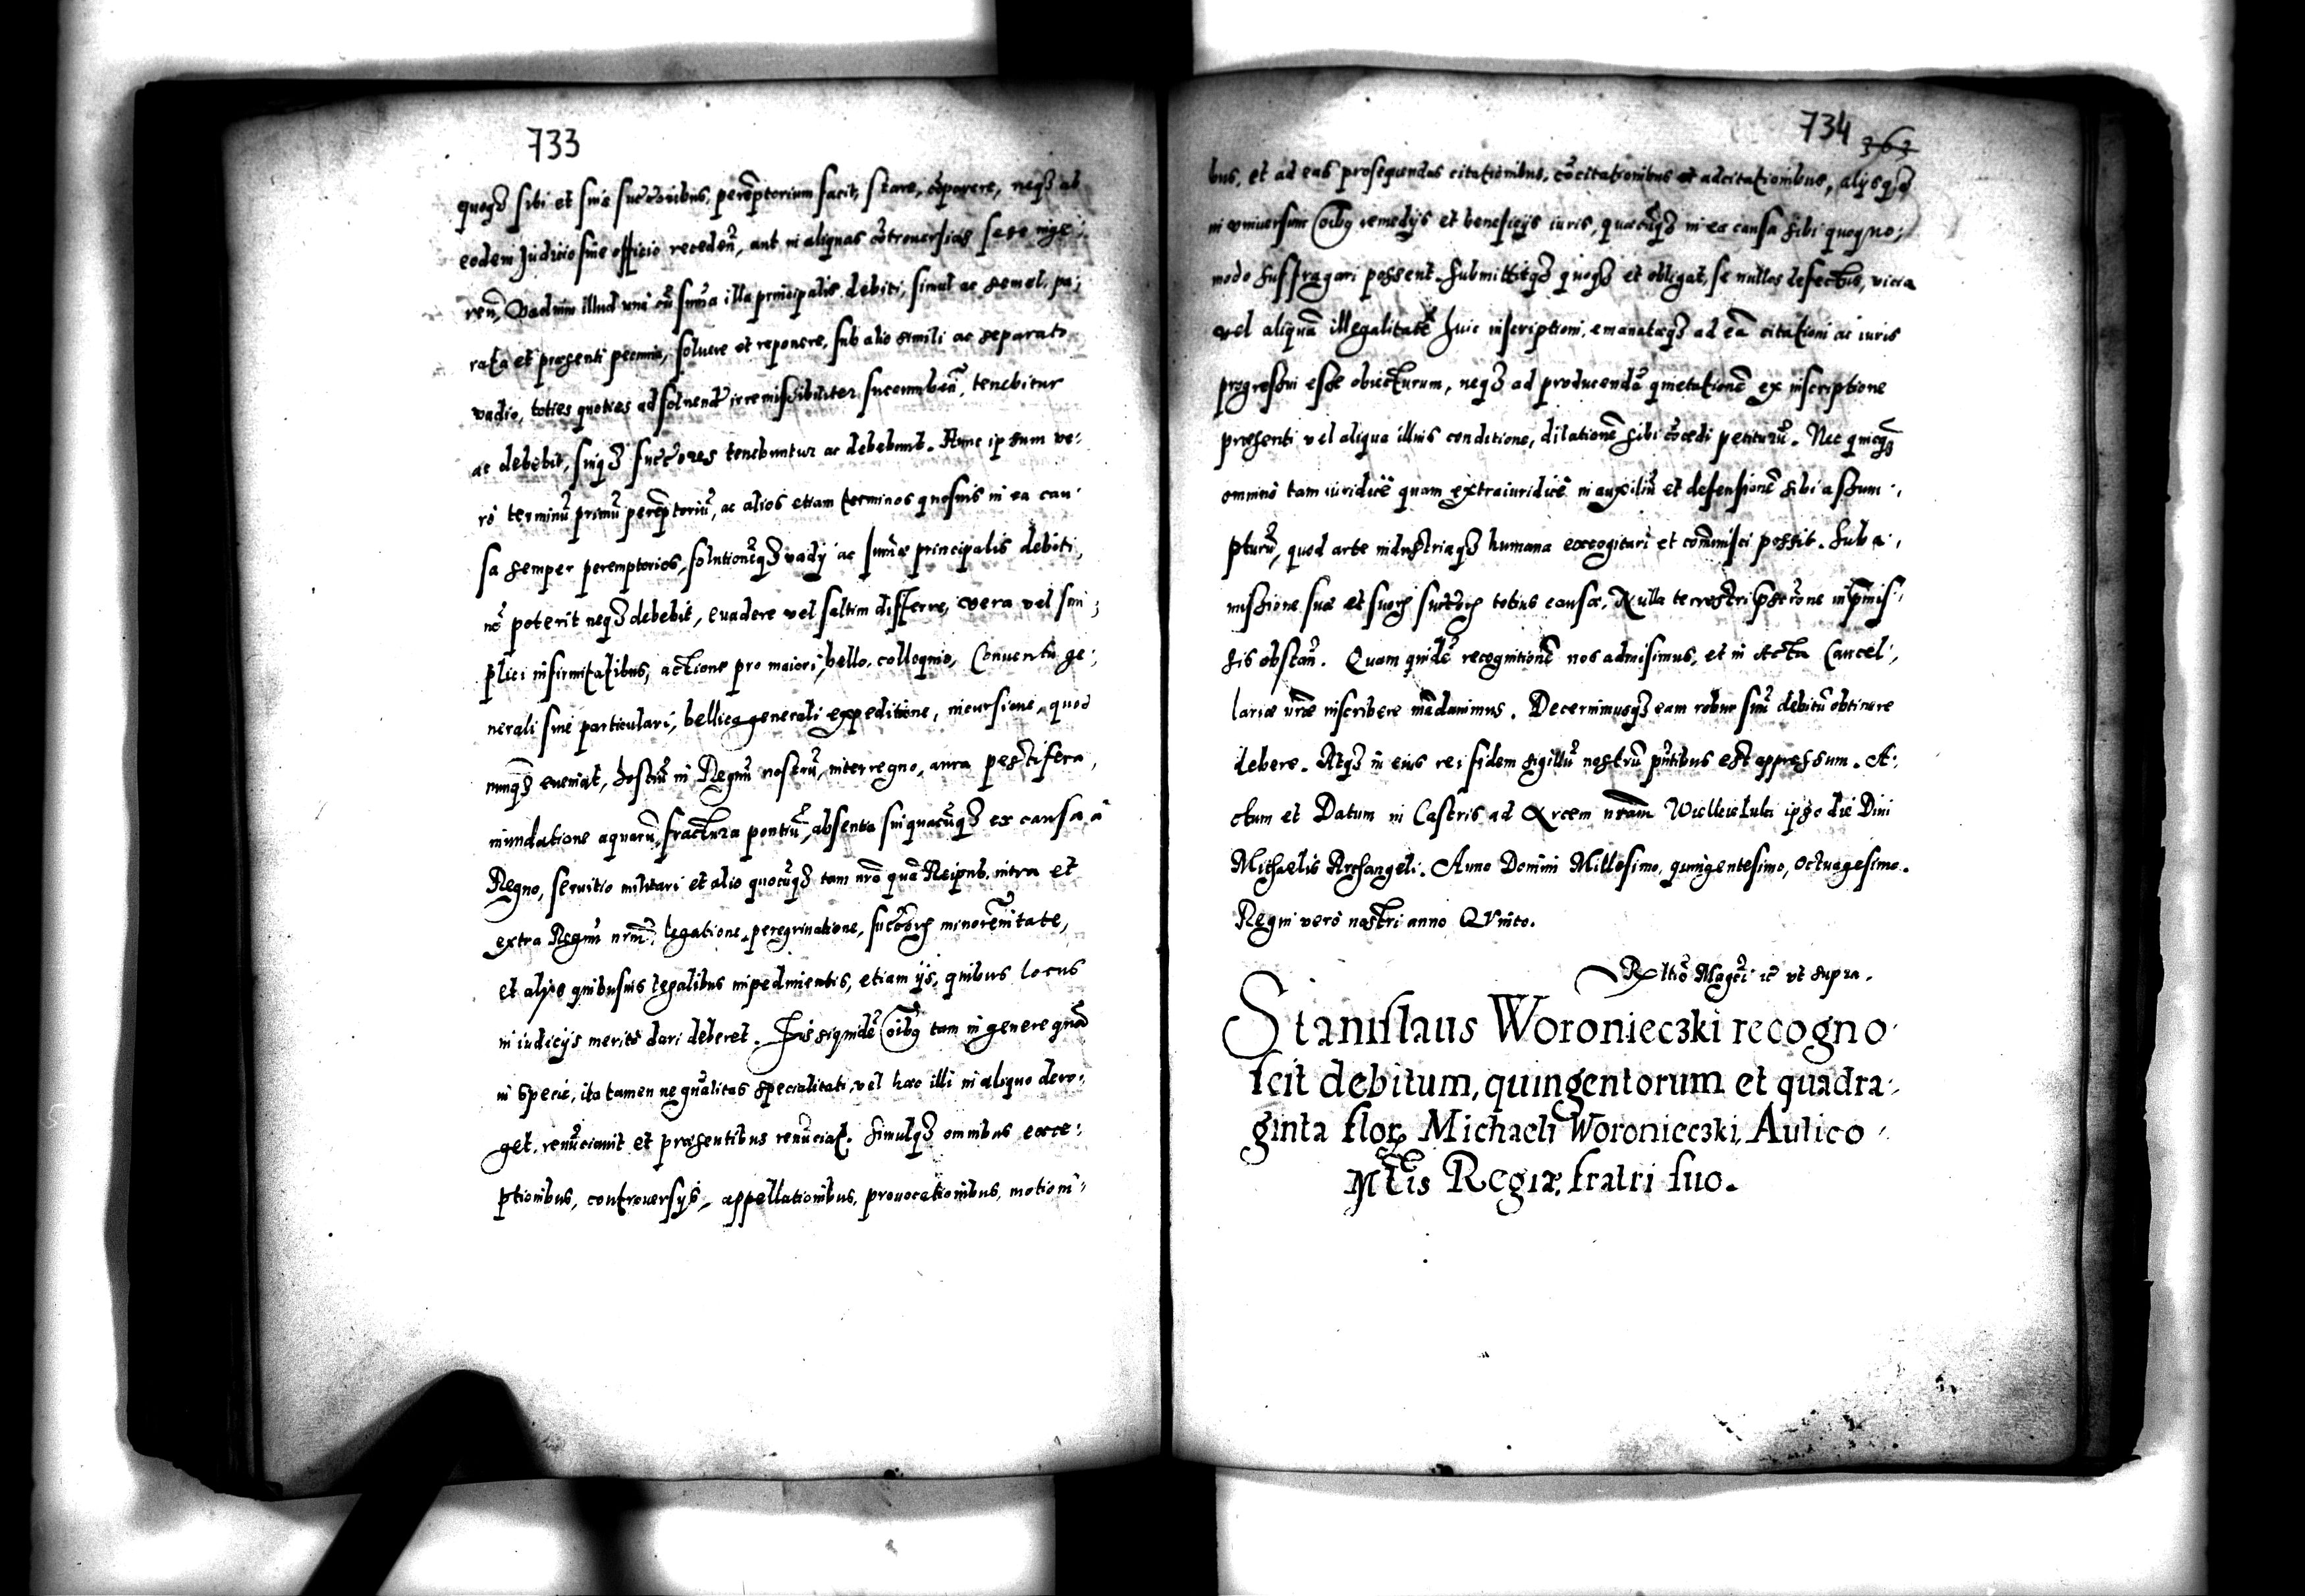 733
quoqз sibi et suis succōribus, perēptorium facit, stare, cōparere, neqз ab
eodem Judicio sine officio recedeñ, aut in aliquas cōtrouersias sese inge:
reñ, Vadium illud vnā cū suma illa principalis debiti, simul ac semel, pa:
rata et præsenti pecunia, soluere et reponere, sub alio simili ac separato
vadio, toties quoties ad soluend irremissibiliter succumbeñ, tenebitur
ac debebit, suiqз succ̄ores tenebuntur ac debebunt. Hunc ipsum ve:
rò terminū primū perēptoriū, ac alios etiam terminos quosuis in ea cau:
sa semper peremptorios, solutionēqз vadij ac sum̄æ principalis debiti,
nō poterit neqз debebit, euadere vel saltim differre, vera vel sim:
plici infirmitatibus, actione pro maiori, bello, colloquio, Conuentu ge:
nerali siue particulari, bellica generali expeditione, incursione, quod
nunqз eueniat, hostiū in Regnū nostrū, interregno, aura pestifera,
inundatione aquarū, fractura pontiū, absentia sui quacūqз ex causa à
Regno, seruitio militari et alio quocūqз tam nr̄o quā Reipub. intra et
extra Regnū nrm̄, legatione, peregrinatione, succ̄orꝝ minorēnitate,
et alijs quibusuis legalibus impedimentis, etiam ijs, quibus locus
in iudicijs meritò dari deberet. Ijs siquidē oībꝯ tam in genere quā
in specie, ita tamen ne gn̄alitas specialitati, vel hæc illi in aliquo dero:
get, renūciauit et præsentibus renūciat. Simulqз omnibus exce:
ptionibus, controuersijs, appellationibus, prouocationibus, motioni:
734 363
bus, et ad eas prosequendas citationibus, cōcitationibus et adcitationibus, alijsqз
in vniuersum oībꝯ remedijs et beneficijs iuris, quæcūqз in ea causa sibi quoquo:
modo suffragari possent. Submittitqз quoqз et obligat, se nullos defectus, vicia
vel aliquā illegalitatē huic inscriptioni, emanatæqз ad eā citationi ac iuris
progressui esse obiecturum, neqз ad producendā quietationē ex inscriptione
præsenti vel aliqua illius conditione, dilationē sibi cōcedi petiturū. Nec quicqз
omninò tam iuridicè quam extraiuridicè in auxiliū et defensionē sibi assum:
pturū, quod arte industriaqз humana excogitari et commisci possit. Sub a:
missione suæ et suorꝝ succ̄orꝝ totius causæ. Nulla terrestri pscr̄one in p̄mis:
sis obstañ. Quam quidē recognitionē nos admisimus, et in Acta Cancel:
lariæ nr̄æ inscribere mādauimus. Decernimusqз eam robur suū debitū obtinere
debere. Atqз in eius rei fidem sigillū nostrū pn̄tibus est appressum. A:
ctum et Datum in Castris ad Arcem nrām Wielleieluki ipso die Diui
Michaelis Archangeli. Anno Domini Millesimo, quingentesimo, Octuagesimo.
Regni verò nostri anno QVinto.
Rltiō Magci ıc̄ vt supra.
Stanislaus Woronieczki recogno:
scit debitum, quingentorum et quadra:
ginta florꝝ Michaeli Woronieczki, Aulico
Mtis Regiæ, fratri suo.